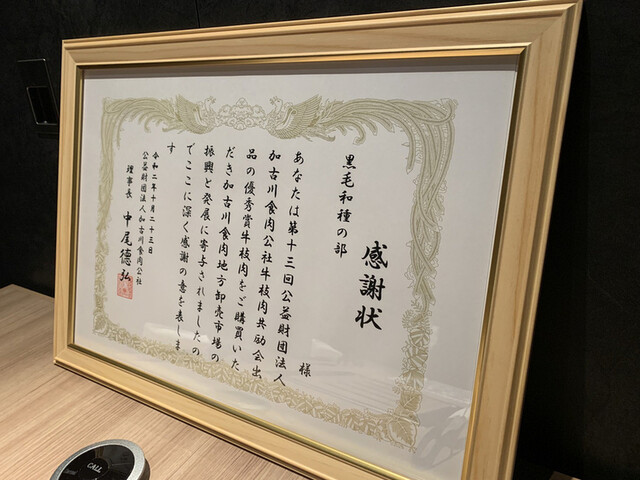 感謝状
黒毛和種の部
様
あなたは第十三回公益財団法人
加古川食肉公社牛枝肉共励会出
品の優秀賞牛枝肉をご購買いた
だき加古川食肉地方卸売市場の
振興と発展に寄与されましたの
でここに深く感謝の意を表しま
す
令和二年十月二十三日
公益財団法人加古川食肉公社
理事長 中尾德弘
CALL